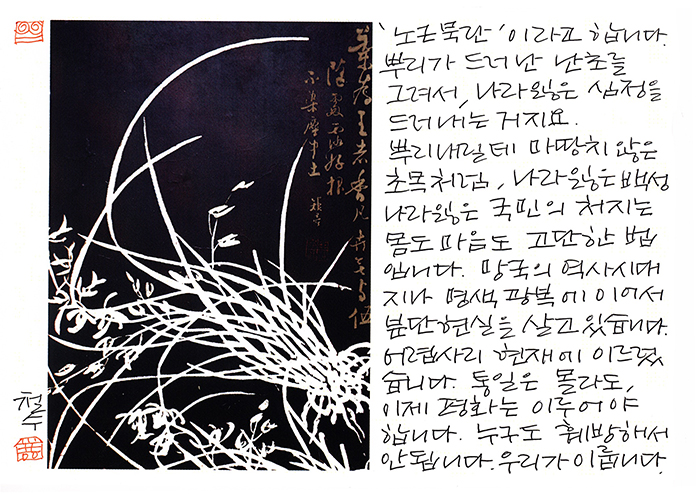 '노근묵란'이라고 합니다.
뿌리가 드러난 난초를
그려서, 나라잃은 심정을
드러내는 거지요.
뿌리내릴데 마땅치 않은
초목처럼, 나라잃은백성
나라잃은 국민의 처지는
몸도 마음도 고단한 법
입니다. 망국의 역사시대
지나 명색 광복에 이어서
분단현실을 살고 있습니다.
어렵사리 현재에 이르렀
습니다. 통일은 몰라도,
이제 평화는 이루어야
합니다. 누구도 훼방해서
안됩니다. 우리가 이룹니다.
철수